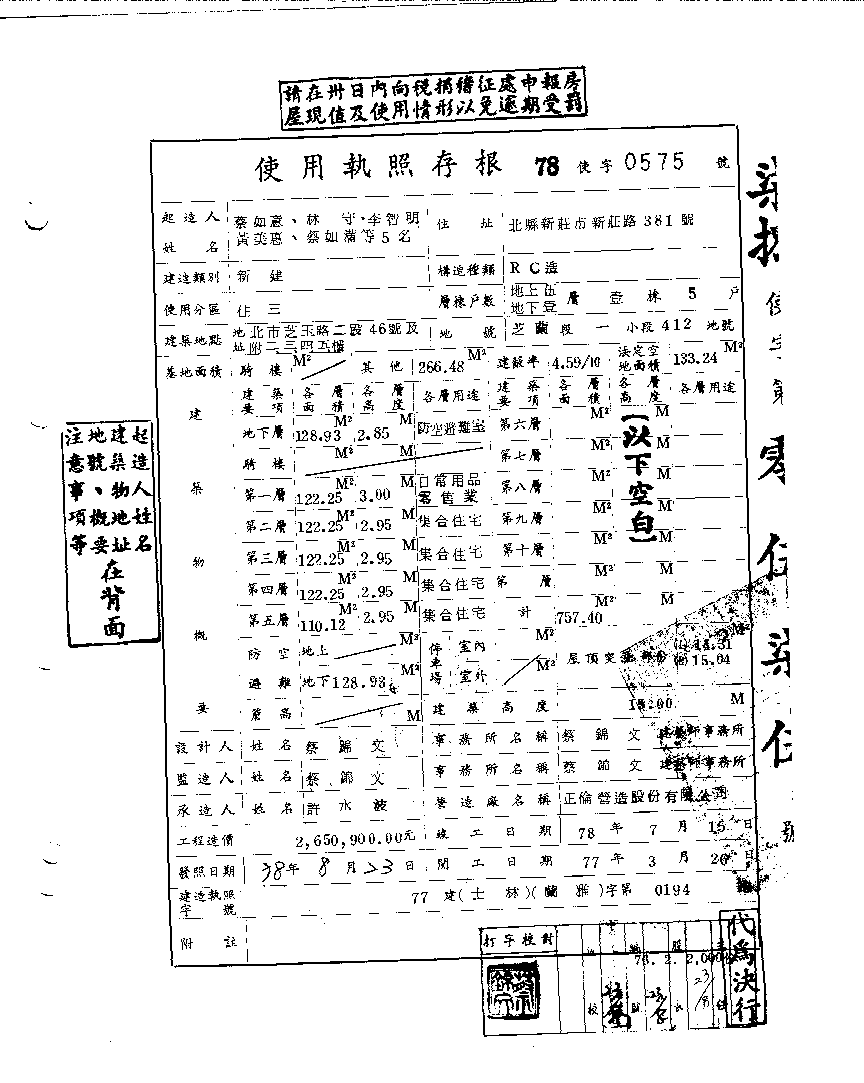 請在卅日內向稅捐稽征處申報房
屋現值及使用情形以免逾期受罰
使用執照存根 78 使字 0575 號
起造人姓名 蔡如意、林守、李智明 黃美惠、蔡如滿等5名 住址 北縣新莊市新莊路381號
建造類別 新建 構造種類 RC造
使用分區 住三 層棟戶數 地上伍 地下壹 層 壹棟 5 戶
建築地點 地址 北市芝玉路二段46號及附二三四五樓 地號 芝蘭段一小段412地號
基地面積 騎樓 M² 其他 266.48 M² 建蔽率 4.59/10 法定空地面積 133.24 M²
建築物概要
建築要項 各層面積 各層高度 各層用途 建築要項 各層面積 各層高度 各層用途
地下層 128.93 M² 2.85 M 防空避難室 第六層 M² M
騎樓 M² M 第七層 M² M
第一層 122.25 M² 3.00 M 日常用品零售業 第八層 M² M
第二層 122.25 M² 2.95 M 集合住宅 第九層 M² M
第三層 122.25 M² 2.95 M 集合住宅 第十層 M² M
第四層 122.25 M² 2.95 M 集合住宅 第 層 M² M
第五層 110.12 M² 2.95 M 集合住宅 計 757.40 M² M
(以下空白)
防空避難 地上 M² 停車場 室內 M² 屋頂突
地下 128.93 M² 室外 M² 15.04
簷高 M 建築高度 M
設計人 姓名 蔡錦文 事務所名稱 蔡錦文建築師事務所
監造人 姓名 蔡錦文 事務所名稱 蔡錦文建築師事務所
承造人 姓名 許水波 營造廠名稱 正倫營造股份有限公司
工程造價 2,650,900.00元 竣工日期 78年7月15日
發照日期 年8月23日 開工日期 77年3月20日
建造執照字號 77建(士林)(蘭雅)字第 0194
附註
打字校對
78. 2. 2,000
代為決行
起造人姓名
建築物地址
地號、概要
注意事項等在背面